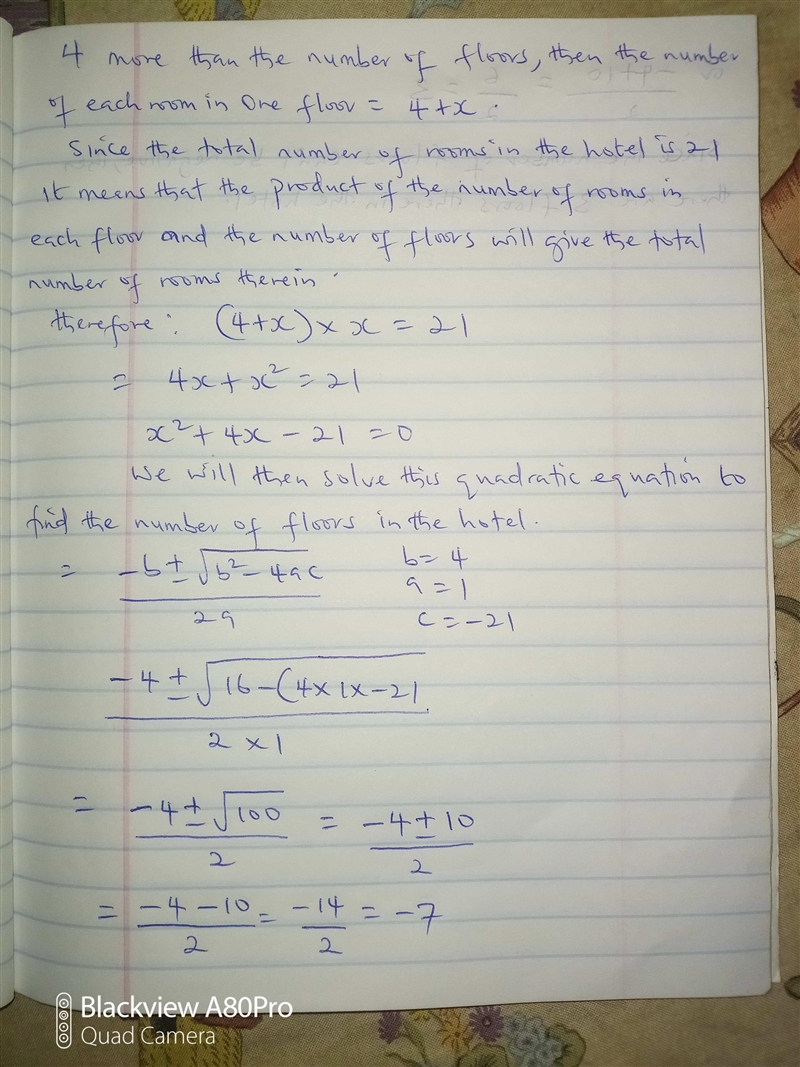 4 more than the number of floors, then the number
of each room in One floor = 4+x.
Since the total number of rooms in the hotel is 21
It means that the product of the number of rooms in
each floor and the number of floors will give the total
number of rooms therein.
therefore: (4+x) × x = 21
= 4x + x² = 21
x² + 4x − 21 = 0
We will then solve this quadratic equation to
find the number of floors in the hotel.
= −b ± √b² − 4ac / 2a
b = 4
a = 1
c = −21
−4 ± √16 − (4×1×−21 / 2 × 1
= −4 ± √100 / 2 = −4 ± 10 / 2
= −4 − 10 / 2 = −14 / 2 = −7
Blackview A80Pro
Quad Camera